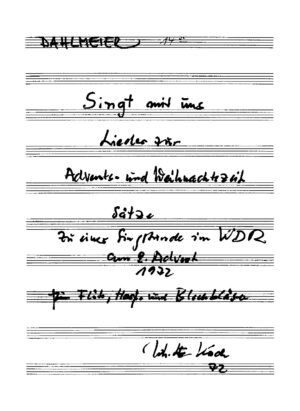 DAHLMEIER
Singt mit uns
Lieder zur
Advents- und Weihnachtszeit
Sätze
zu einer Singstunde im WDR
am 2. Advent
1972
für Flöte, Harfe und Blechbläser
Koch
72